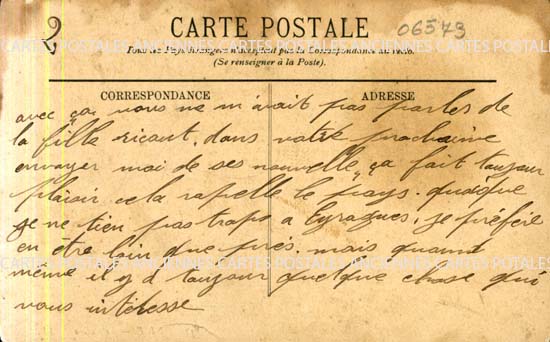 2
CARTE POSTALE
06573
Tous les Pays étrangers n'acceptent pas la Correspondance au recto.
(Se renseigner à la Poste).
CORRESPONDANCE
ADRESSE
avec ça, vous ne m'avait pas parler de
la fille ricaut, dans votre prochaine
envoyer moi de ses nouvelle, ça fait toujour
plaisir cela rapelle le pays. quoique
je ne tien pas trops a Eyragues. je préfère
en etre loin que près. mais quand
même il y a toujour quelque chose qui
vous intéresse
ANCIENNES CARTES POSTALES ANCIENNES CARTES POSTALES